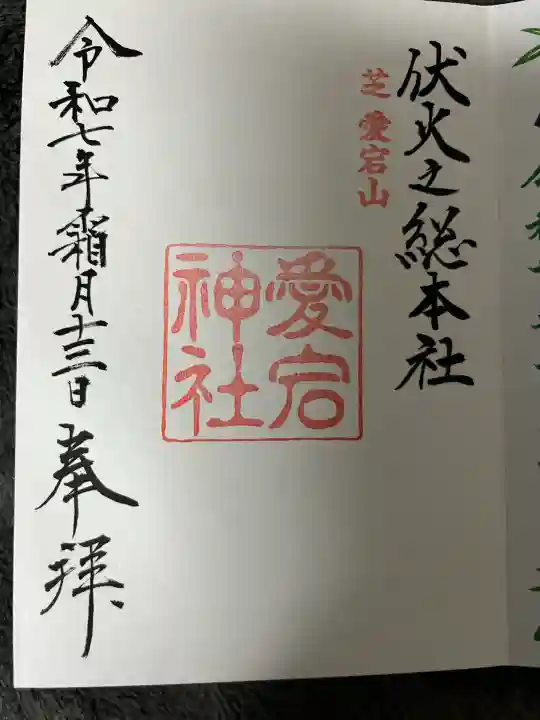 伏火之総本社
芝愛宕山
愛宕
神社
令和七年霜月十三日奉拝